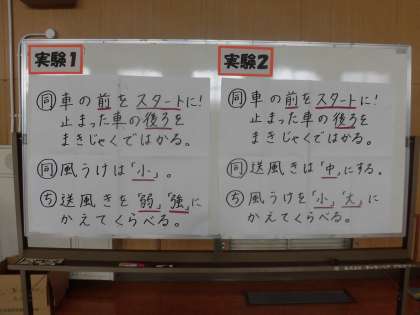 実験1
同 車の前をスタートに!
止まった車の後ろを
まきじゃくではかる。
同 風うけは「小」。
ち 送風きを「弱」「強」に
かえてくらべる。
実験2
同 車の前をスタートに!
止まった車の後ろを
まきじゃくではかる。
同 送風きは「中」にする。
ち 風うけを「小」「大」に
かえてくらべる。